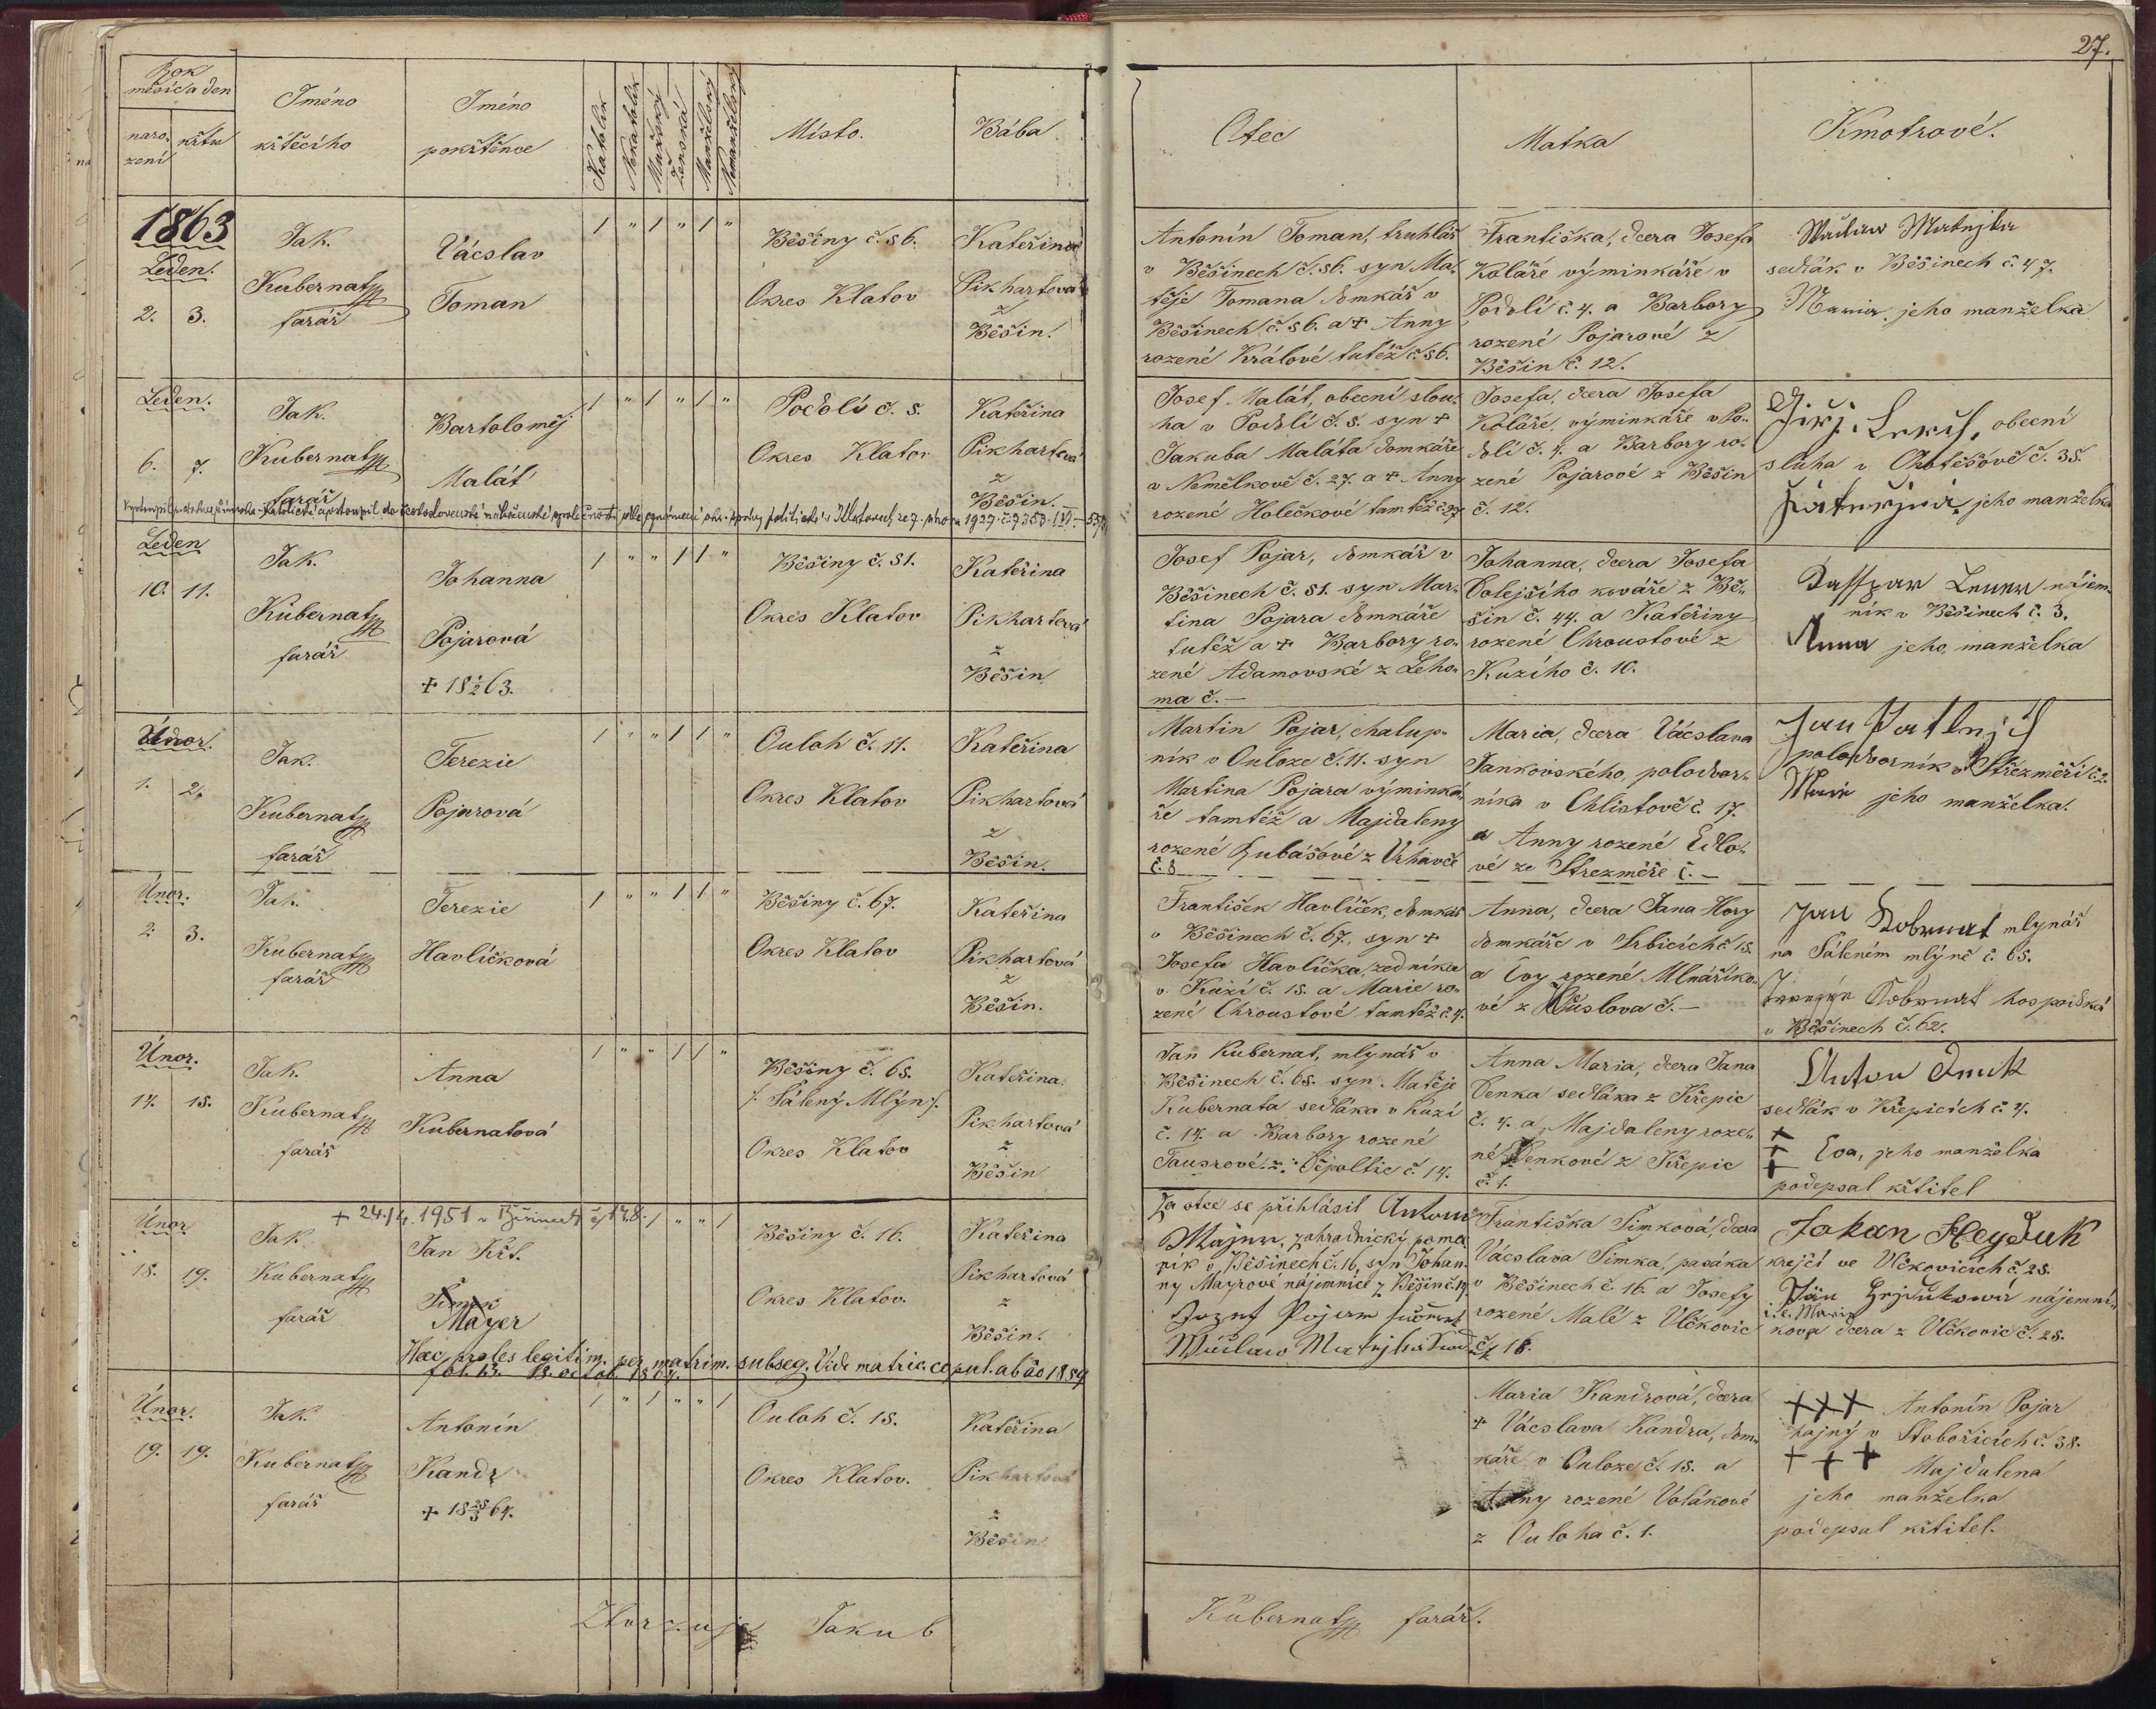 27.
Rok
měsíc a den
naro-
zení
křtu
Jméno
křtěcího
Jméno
pokřtěnce
Katolík
Nekatolík
Mužský
Ženská
Manželský
Nemanželský
Místo.
Bába
Otec
Matka
Kmotrové.
1863
Leden.
2. 3.
Jak.
Kubernat
farář
Vácslav
Toman
1 " 1 " 1 "
Běšiny č. 56.
Okres Klatov
Kateřina
Pikhartová
z
Běšin.
Antonín Toman, truhlář
v Běšinech č. 56. syn Ma-
těje Tomana domkář v
Běšinech č. 56. a + Anny
rozené Králové tutéž č. 56.
Františka, dcera Josefa
Koláře výminkáře v
Podolí č. 4. a Barbory
rozené Pojarové z
Běšin č. 12.
sedlák v Běšinech č. 47.
jeho manželka
Leden.
6. 7.
Jak.
Kubernat
farář
Bartoloměj
Malát
1 " 1 " 1 "
Podolí č. 5.
Okres Klatov
Kateřina
Pikhartová
z
Běšin.
Josef Malát, obecní slou-
ha v Podolí č. 5. syn +
Jakuba Maláta domkáře
v Nemělkově č. 27. a + Anny
rozené Holečkové tamtéž č. 27
Josefa, dcera Josefa
Koláře, výminkáře v Po-
dolí č. 4. a Barbory ro-
zené Pojarové z Běšin
č. 12.
obecní
sluha v č. 35.
jeho manželka
Leden
10. 11.
Jak.
Kubernat
farář
Johanna
Pojarová
+ 18 1/2 63.
1 " " 1 1 "
Běšiny č. 51.
Okres Klatov
Kateřina
Pikhartová
z
Běšin
Josef Pojar, domkář v
Běšinech č. 51. syn Mar-
tina Pojara domkáře
tutéž a + Barbory ro-
zené Adamovské z Leho-
ma č. —
Johanna, dcera Josefa
Dolejšího kováře z Bě-
šin č. 44. a Kateřiny
rozené Chroustové z
Kuzího č. 10.
nájem-
ník v Běšinech č. 3.
Anna jeho manželka
Únor.
1. 2.
Jak.
Kubernat
farář
Terezie
Pojarová
1 " " 1 1 "
Ouloh č. 11.
Okres Klatov
Kateřina
Pikhartová
z
Běšin.
Martin Pojar, chalup-
ník v Ouloze č. 11. syn
Martina Pojara výminká-
ře tamtéž a Majdaleny
rozené Lubášové z Vrhavče
č. 8
Maria, dcera Vácslava
Jankovského, polodvor-
níka v Chlistově č. 17.
a Anny rozené Edlo-
vé ze Strezměře č. —
polodvorník v Střezměři č. 2.
jeho manželka.
Únor.
2. 3.
Jak.
Kubernat
farář
Terezie
Havlíčková
1 " " 1 1 "
Běšiny č. 67.
Okres Klatov
Kateřina
Pikhartová
z
Běšin.
František Havlíček, domkář
v Běšinech č. 67., syn +
Josefa Havlíčka, zedníka
v Kuzí č. 15. a Marie ro-
zené Chroustové tamtéž č. 4.
Anna, dcera Jana Hory
domkáře v Srbicích č. 15.
a Evy rozené Mlnaříko-
vé z č. —
Jan Kobernat mlynář
na Páleném mlýně č. 65.
Kobernat hospodská
v Běšinech č. 62.
Únor.
14. 15.
Jak.
Kubernat
farář
Anna
Kubernatová
1 " " 1 1 "
Běšiny č. 65.
/: Pálený Mlýn :/
Okres Klatov
Kateřina
Pikhartová
z
Běšin
Jan Kubernat, mlynář v
Běšinech č. 65. syn Matěje
Kubernata sedláka v Kuzí
č. 14. a Barbory rozené
Tausrové z Čepoltic č. 14.
Anna Maria, dcera Jana
Denka sedláka z Křepic
č. 4. a Majdaleny roze-
né Denkové z Křepic
č. 1.
Anton Denk
sedlák v Křepicích č. 4.
+ + + Eva, jeho manželka
podepsal křtitel
+ 24./4. 1951 v Běšinech čp 128.
Únor
18. 19.
Jak.
Kubernat
farář
Jan Křt.
Šimek
Mayer
1 " 1 " " 1
Běšiny č. 16.
Okres Klatov.
Kateřina
Pikhartová
z
Běšin.
Haec proles legitim. per matrim. subseq. Vide matric. copul. ab ao 1859
fol. 13. 18. octob. 1864.
Za otce se přihlásil Antonín
Majer, zahradnický pomoc-
ník v Běšinech č. 16, syn Johan-
ny Mayrové nájemnice z Běšin č. 19
Josef Pojar
Františka Šimková, dcera
Vácslava Šimka, pasáka
v Běšinech č. 16. a Josefy
rozené Malé z Vlčkovic
č. 16.
Johan Heyduk
krejčí ve Vlčkovicích č. 28.
nájemní-
kova dcera z Vlčkovic č. 28.
Únor.
19. 19.
Jak.
Kubernat
farář
Antonín
Kandr
+ 18 25/3 64.
1 " 1 " " 1
Ouloh č. 15.
Okres Klatov.
Kateřina
Pikhartová
z
Běšin
Maria Kandrová, dcera
+ Vácslava Kandra, dom-
káře v Ouloze č. 15. a
Anny rozené Volákové
z Ouloha č. 1.
+++ Antonín Pojar
hajný v Stobořicích č. 38.
+++ Majdalena
jeho manželka
podepsal křtitel.
Ztvrzuje Jakub
Kubernat farář.